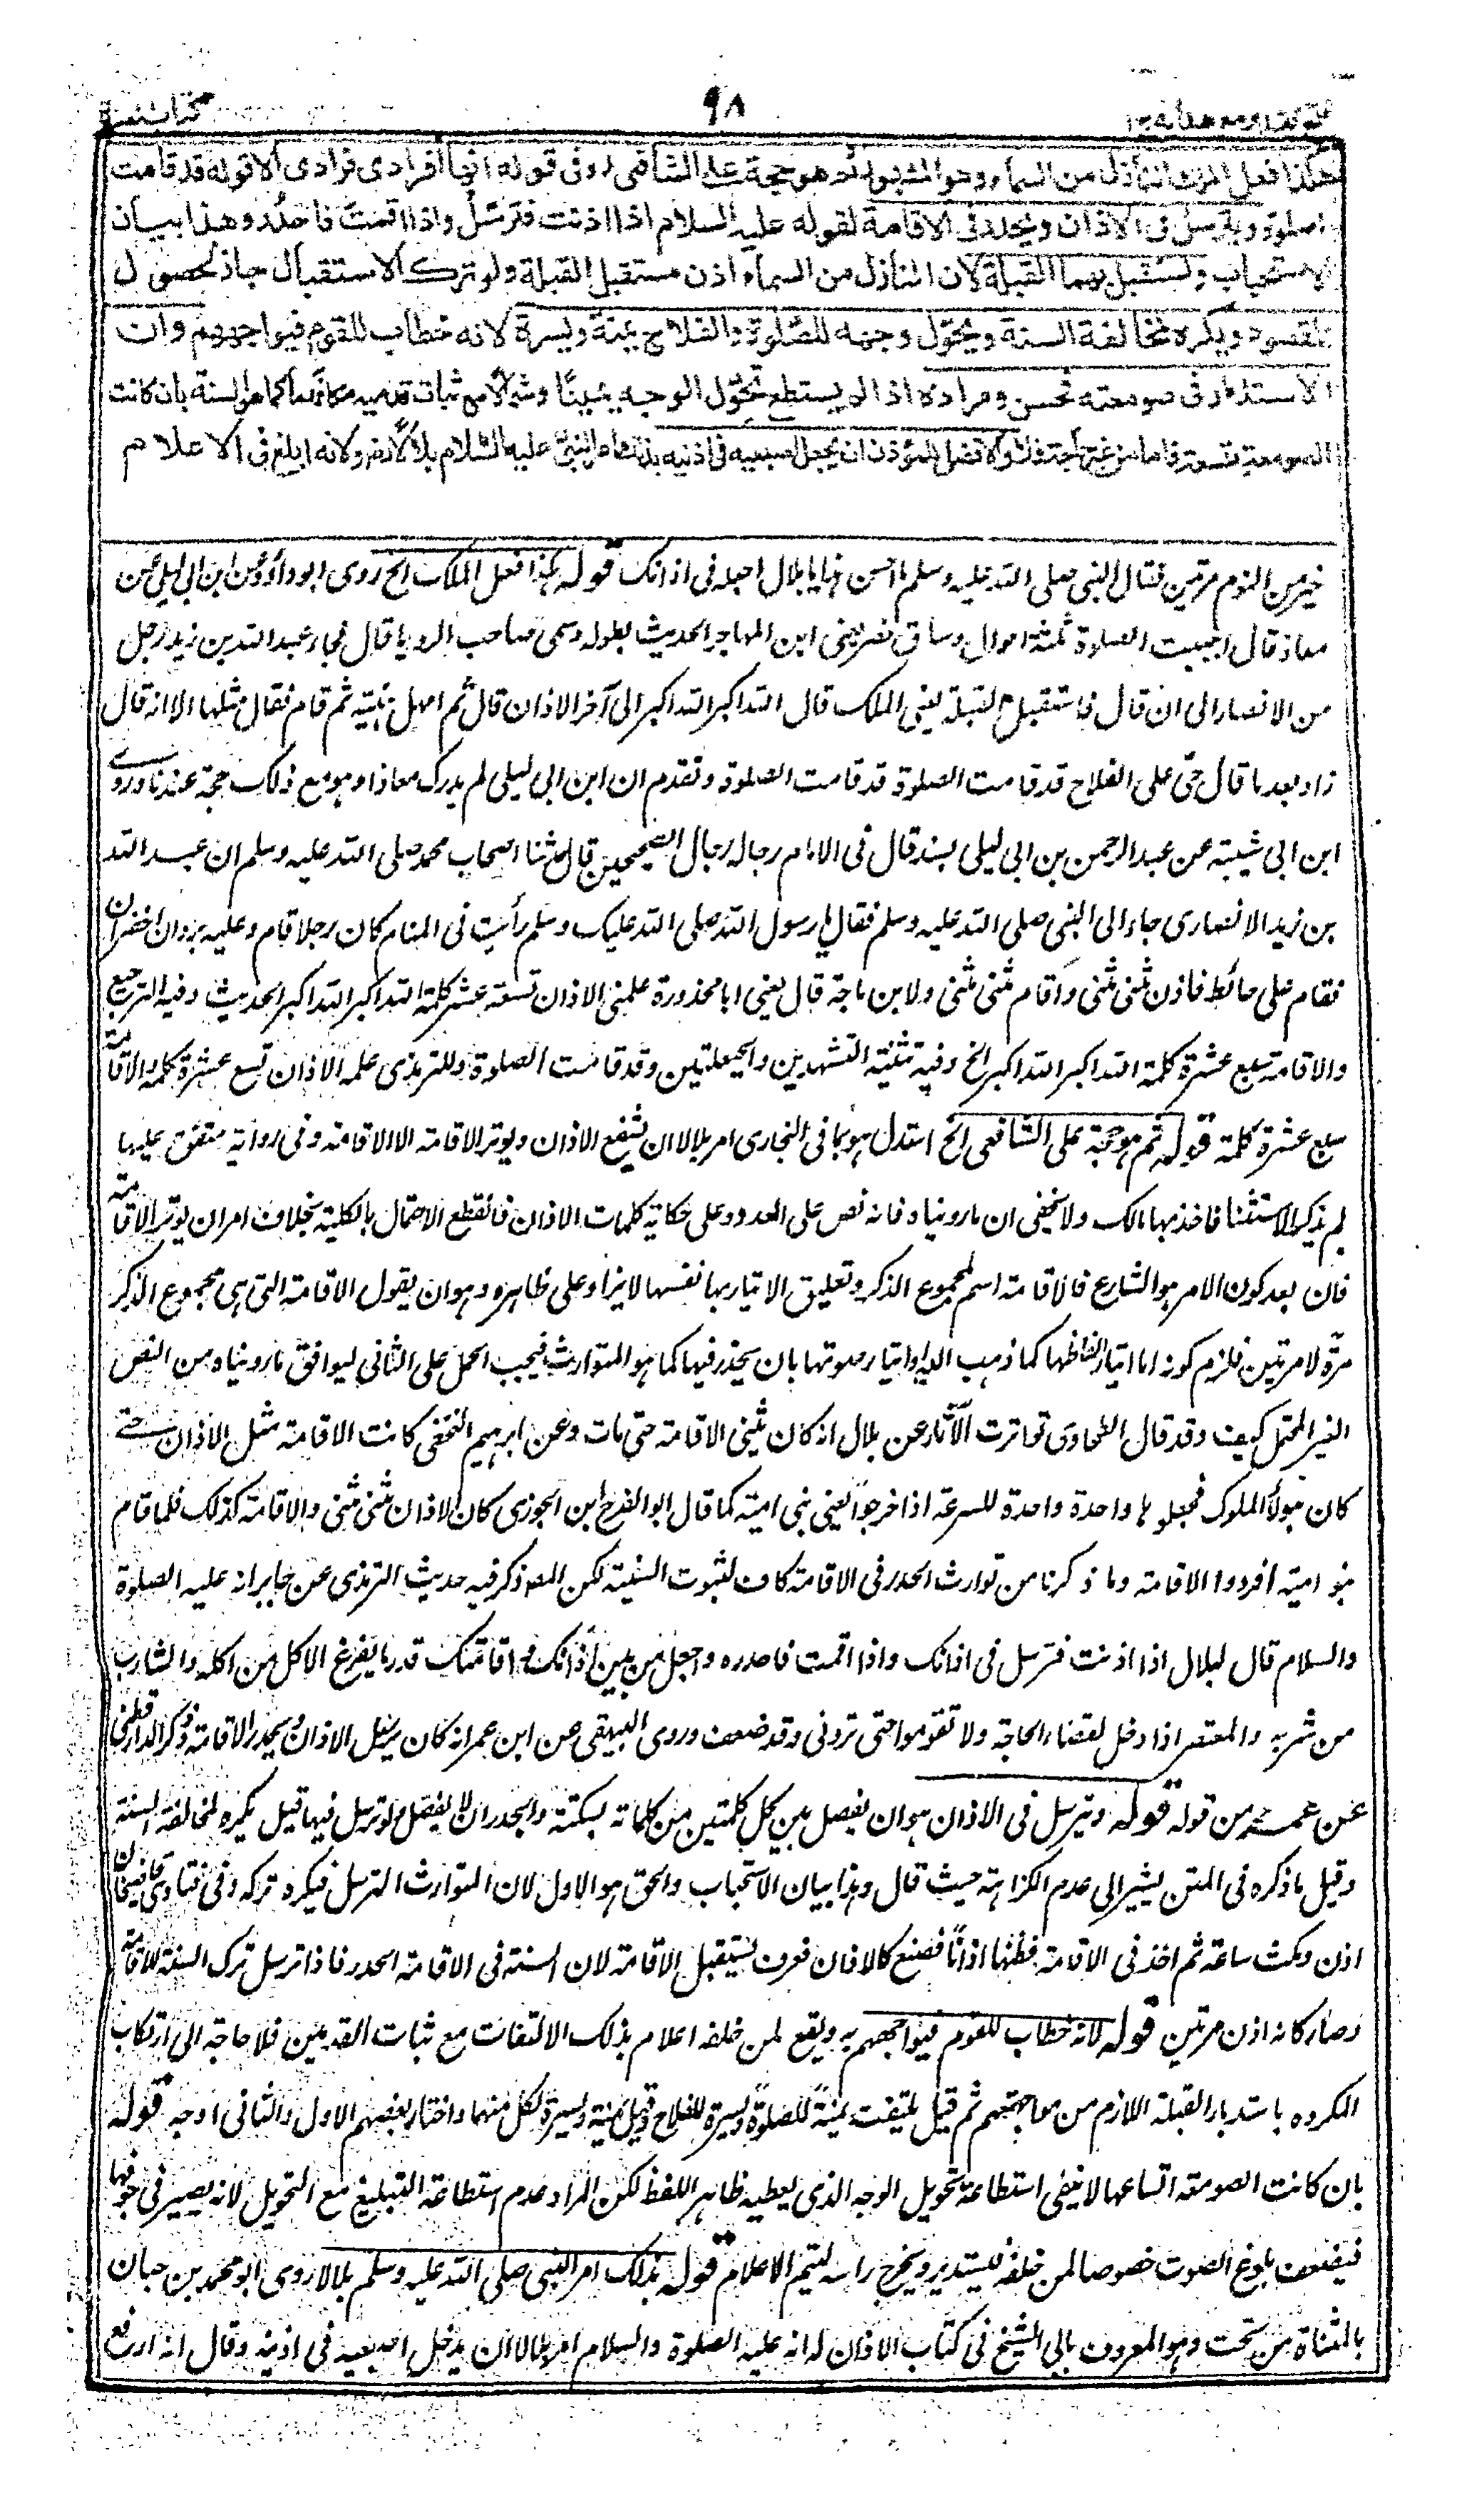 ٩٨
هكذا فعل الملك النازل من السماء وهو المشهور ثم هو حجة على الشافعى رح فى قوله انها فرادى فرادى الا قوله قد قامت
الصلوة ويترسل فى الاذان ويحدر فى الاقامة لقوله عليه السلام اذا اذنت فترسل واذا اقمت فاحدر وهذا بيان
الاستحباب ويستقبل بهما القبلة لان النازل من السماء اذن مستقبل القبلة ولو ترك الاستقبال جاز لحصول
المقصود ويكره لمخالفة السنة ويحول وجهه للصلوة والفلاح يمنة ويسرة لانه خطاب للقوم فيواجههم وان
الاستدار فى صومعته فحسن ومراده اذا لم يستطع تحول الوجه يمينا وشمالا مع ثبات قدميه مكانهما كما هو السنة بان كانت
الصومعة متسعة فاما من غير حاجة فلا والافضل للمؤذن ان يجعل اصبعيه فى اذنيه بذلك امر النبى عليه السلام بلالا رض ولانه ابلغ فى الاعلام
خير من النوم مرتين فقال النبى صلى الله عليه وسلم ما احسن هذا يا بلال اجعله فى اذانك قوله هكذا فعل الملك الخ روى ابو داؤد عن ابن ابى ليلى عن
معاذ قال احيلت الصلوة ثلثة احوال وساق نصر يعنى ابن المهاجر الحديث بطوله وسمى صاحب الرويا قال فجاء عبد الله بن زيد رجل
من الانصار الى ان قال فاستقبل القبلة يعنى الملك قال الله اكبر الله اكبر الى آخر الاذان قال ثم امهل هنية ثم قام فقال مثلها الا انه قال
زاد بعد ما قال حى على الفلاح قد قامت الصلوة قد قامت الصلوة وتقدم ان ابن ابى ليلى لم يدرك معاذا وهو مع ذلك حجة عندنا وروى
ابن ابى شيبة عن عبد الرحمن بن ابى ليلى بسند قال فى الامام رجاله رجال الصحيحين قال حدثنا اصحاب محمد صلى الله عليه وسلم ان عبد الله
بن زيد الانصارى جاء الى النبى صلى الله عليه وسلم فقال يا رسول الله صلى الله عليك وسلم رأيت فى المنام كان رجلا قام وعليه بردان اخضران
فقام على حائط فاذن مثنى مثنى واقام مثنى مثنى ولابن ماجة قال يعنى ابا محذورة علمنى الاذان تسعة عشر كلمة الله اكبر الله اكبر الحديث وفيه الترجيع
والاقامة سبع عشرة كلمة الله اكبر الله اكبر الخ وفيه تثنية التشهدين والحيعلتين وقد قامت الصلوة وللترمذى علمه الاذان تسع عشرة كلمة والاقامة
سبع عشرة كلمة قوله ثم هو حجة على الشافعى الخ استدل هو بما فى البخارى امر بلالا ان يشفع الاذان ويوتر الاقامة الا الاقامة وفى رواية متفق عليها
لم يذكر الاستثنا فاخذ بها مالك ولا يخفى ان ما رويناه فانه نص على العدد وعلى حكاية كلمات الاذان فانقطع الاحتمال بالكلية بخلاف امر ان يوتر الاقامة
فان بعد كون الامر هو الشارع فالاقامة اسم لمجموع الذكر وتعليق الايتار بها نفسها لا يراد على ظاهره وهو ان يقول الاقامة التى هى مجموع الذكر
مرة لا مرتين فلزم كونه اما ايتار الفاظها كما ذهب اليه او ايتار صوتها بان يحذر فيها كما هو المتوارث فيجب الحمل على الثانى ليوافق ما رويناه من النص
الغير المحتمل كيف وقد قال الطحاوى تواترت الآثار عن بلال انه كان يثنى الاقامة حتى مات وعن ابراهيم النخعى كانت الاقامة مثل الاذان حتى
كان هؤلاء الملوك فجعلوها واحدة واحدة للسرعة اذا خرجوا يعنى بنى امية كما قال ابو الفرج ابن الجوزى كان الاذان مثنى مثنى والاقامة كذلك فلما قام
بنو امية افردوا الاقامة وما ذكرنا من توارث الحدر فى الاقامة كاف لثبوت السنية لكن المص ذكر فيه حديث الترمذى عن جابر انه عليه الصلوة
والسلام قال لبلال اذا اذنت فترسل فى اذانك واذا اقمت فاحدره واجعل من بين اذانك واقامتك قدر ما يفرغ الاكل من اكله والشارب
من شربه والمعتصر اذا دخل لقضاء الحاجة ولا تقوموا حتى ترونى وقد ضعف وروى البيهقى عن ابن عمر انه كان يرتل الاذان ويحدر الاقامة وذكر الدارقطنى
عن عمر من قوله قوله ويترسل فى الاذان هو ان يفصل بين كل كلمتين من كلماته بسكتة والحدر ان لا يفصل ولو ترسل فيها قيل يكره لمخالفة السنة
وقيل ما ذكره فى المتن يشير الى عدم الكراهة حيث قال وهذا بيان الاستحباب والحق هو الاول لان المتوارث الترسل فيكره تركه وفى فتاوى قاضيخان
اذن ومكث ساعة ثم اخذ فى الاقامة فظنها اذانا فصنع كالاذان فعرف يستقبل الاقامة لان السنة فى الاقامة الحدر فاذا ترسل ترك السنة للاقامة
وصار كانه اذن مرتين قوله لانه خطاب للقوم فيواجههم به ويقع لمن خلفه اعلام بذلك الالتفات مع ثبات القدمين فلا حاجة الى ارتكاب
المكروه باستدبار القبلة اللازم من مواجهتهم ثم قيل يلتفت يمنة للصلوة ويسرة للفلاح وقيل يمنة ويسرة لكل منهما واختار بعضهم الاول والثانى اوجه قوله
بان كانت الصومعة اتساعها لا ينفى استطاعة تحويل الوجه الذى يعطيه ظاهر اللفظ لكن المراد عدم استطاعة التبليغ مع التحويل لانه يصير فى جوفها
فيضعف بلوغ الصوت خصوصا لمن خلفه فليستدير ويخرج راسه ليتم الاعلام قوله بذلك امر النبى صلى الله عليه وسلم بلالا روى ابو محمد بن حبان
بالمثناة من تحت وهو المعروف بابى الشيخ فى كتاب الاذان له انه عليه الصلوة والسلام امر بلالا ان يدخل اصبعيه فى اذنيه وقال انه ارفع